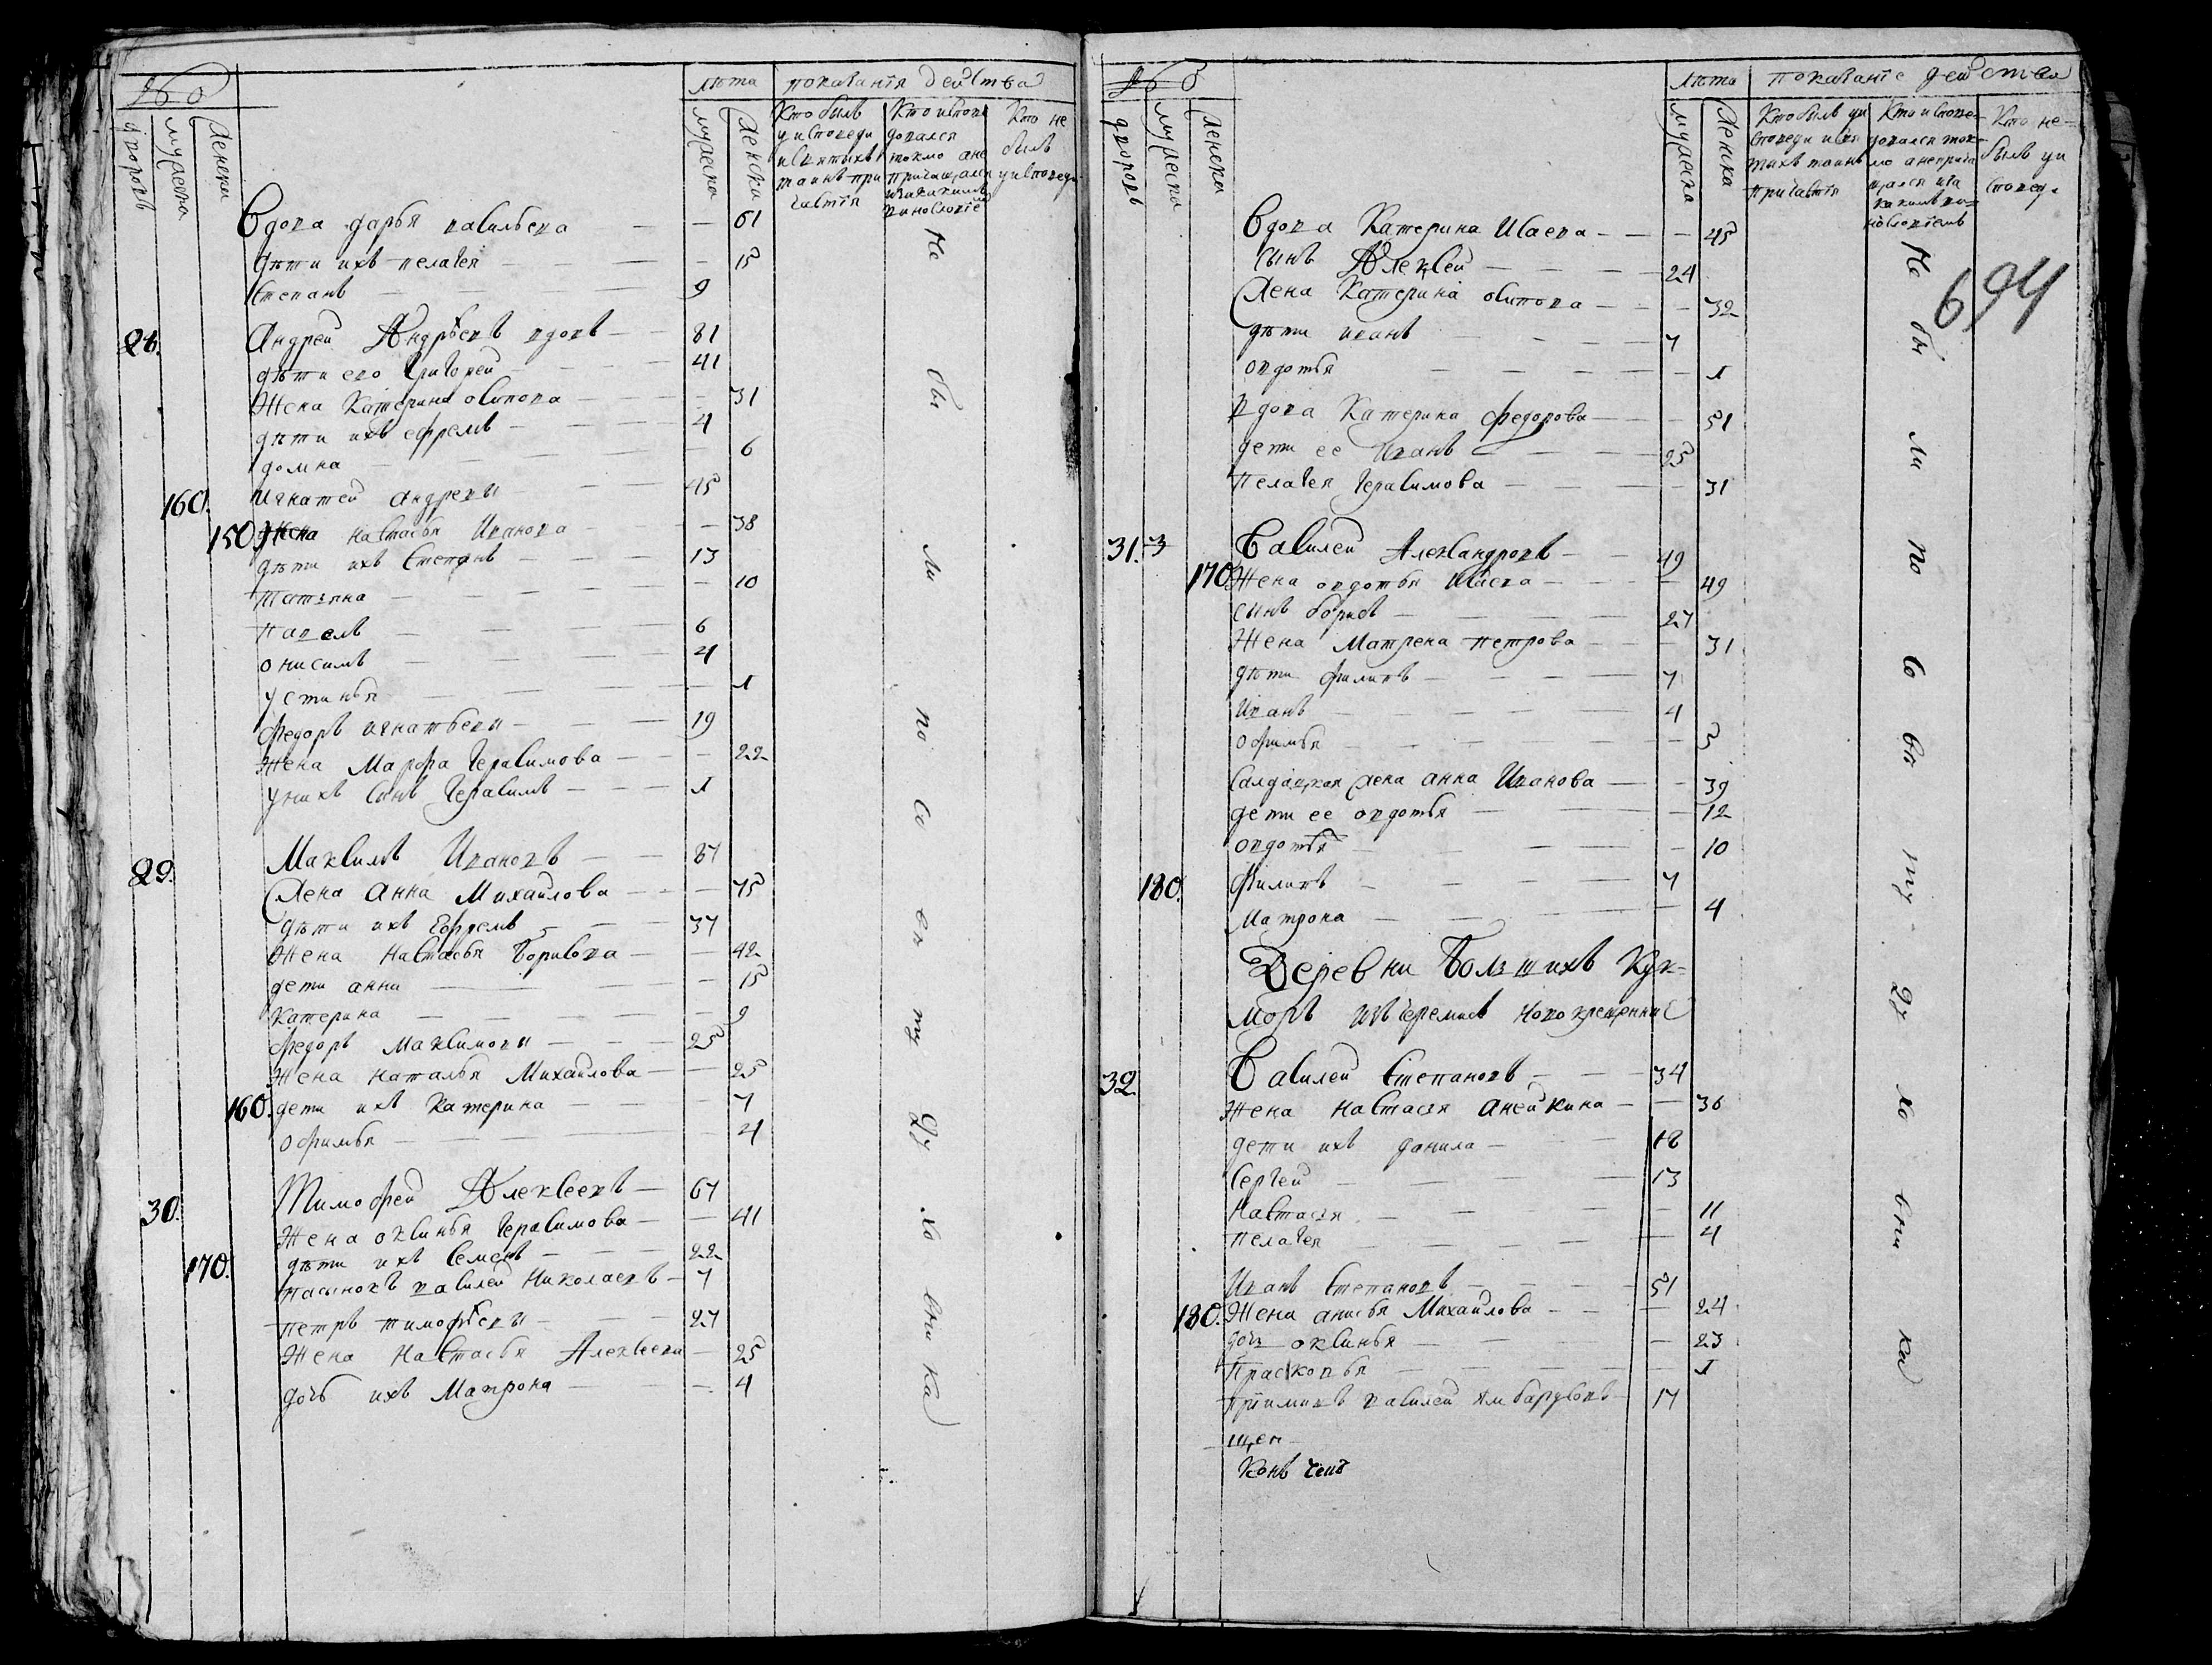 лѣта показанія действа
дворовъ
мужеска
женска
мужеска
женска
Кто былъ
у исповеди
и святыхъ
таинъ при
частія
Кто испове
довался
токмо а не
причащался
и за какимъ
винословіе
Кто не
былъ
у исповеди
Вдова дарья васильева — — 61
дѣти ихъ пелагея — — 15
Степанъ — — 9
28. Андрей Андрѣевъ вдовъ — 81
дѣти его Григорей — 41
Жена Катерина осипова — — 31
дѣти ихъ ефремъ — — 4
домна — — 6
160. Игнатей андреевъ — — 45
150. Жена настасья Иванова — — 38
дѣти ихъ Степанъ — — 13
Татьяна — — 10
Павелъ — — 6
онисимъ — — 4
устинья — — 1
Федоръ игнатьевъ — — 19
Жена Марфа Герасимова — — 22
у нихъ сынъ Герасимъ — — 1
29. Максимъ Ивановъ — — 87
Жена Анна Михайлова — — 75
дѣти ихъ Ефремъ — — 37
Жена настасья Борисова — — 42
дети анна — — 15
Катерина — — 9
Федоръ Максимовъ — — 25
Жена наталья Михайлова — — 25
160. дети ихъ Катерина — — 7
офимья — — 4
30. Тимофей Алексеевъ — 67
Жена оксинья Герасимова — — 41
дѣти ихъ Семенъ — — 22
170. пасынокъ василей Николаевъ — 7
петръ тимофѣевъ — — 27
Жена Настасья Алексеева — 25
дочь ихъ Матрона — — 4
Не бы ли по со вя ту ду хо вни ка
лѣта показаніе действа
дворовъ
мужеска
женска
мужеска
женска
Кто былъ у и
споведи и свя
тыхъ таинъ
причастія
Кто испове-
довался ток-
мо а неприча
щался и за
какимъ ви-
нословіемъ
Кто не-
былъ у и
споведи
694
Вдова Катерина Исаева — — 45
Сынъ Алексей — — 24
Жена Катерина осипова — — 32
дѣти иванъ — — 7
овдотья — — 1
Вдова Катерина федорова — — 51
дети ее Иванъ — — 25
Пелагея Герасимова — — 31
31. Василей Александровъ — — 49
170. Жена овдотья Исаева — — 49
сынъ борисъ — — 27
Жена Матрена петрова — — 31
дѣти филипъ — — 7
Иванъ — — 4
офимья — — 3
Салдацкая жена анна Иванова — — 39
дети ее овдотья — — 12
овдотья — — 10
180. Филипъ — — 7
Матрона — — 4
Деревни Большихъ Кук-
моръ изъ черемисъ новокрещенныя
32 Василей Степановъ — — 34
Жена настасья анейкина — — 36
дети ихъ данила — — 18
Сергей — — 13
Настасья — — 11
пелагея — — 4
Иванъ Степановъ — — 51
180. Жена анисья Михайлова — — 24
дочь оксинья — — 23
Прасковья — — 1
Приимышъ василей — 17
щен
Конъ
Не бы ли по со вя ту ду хо вни ка